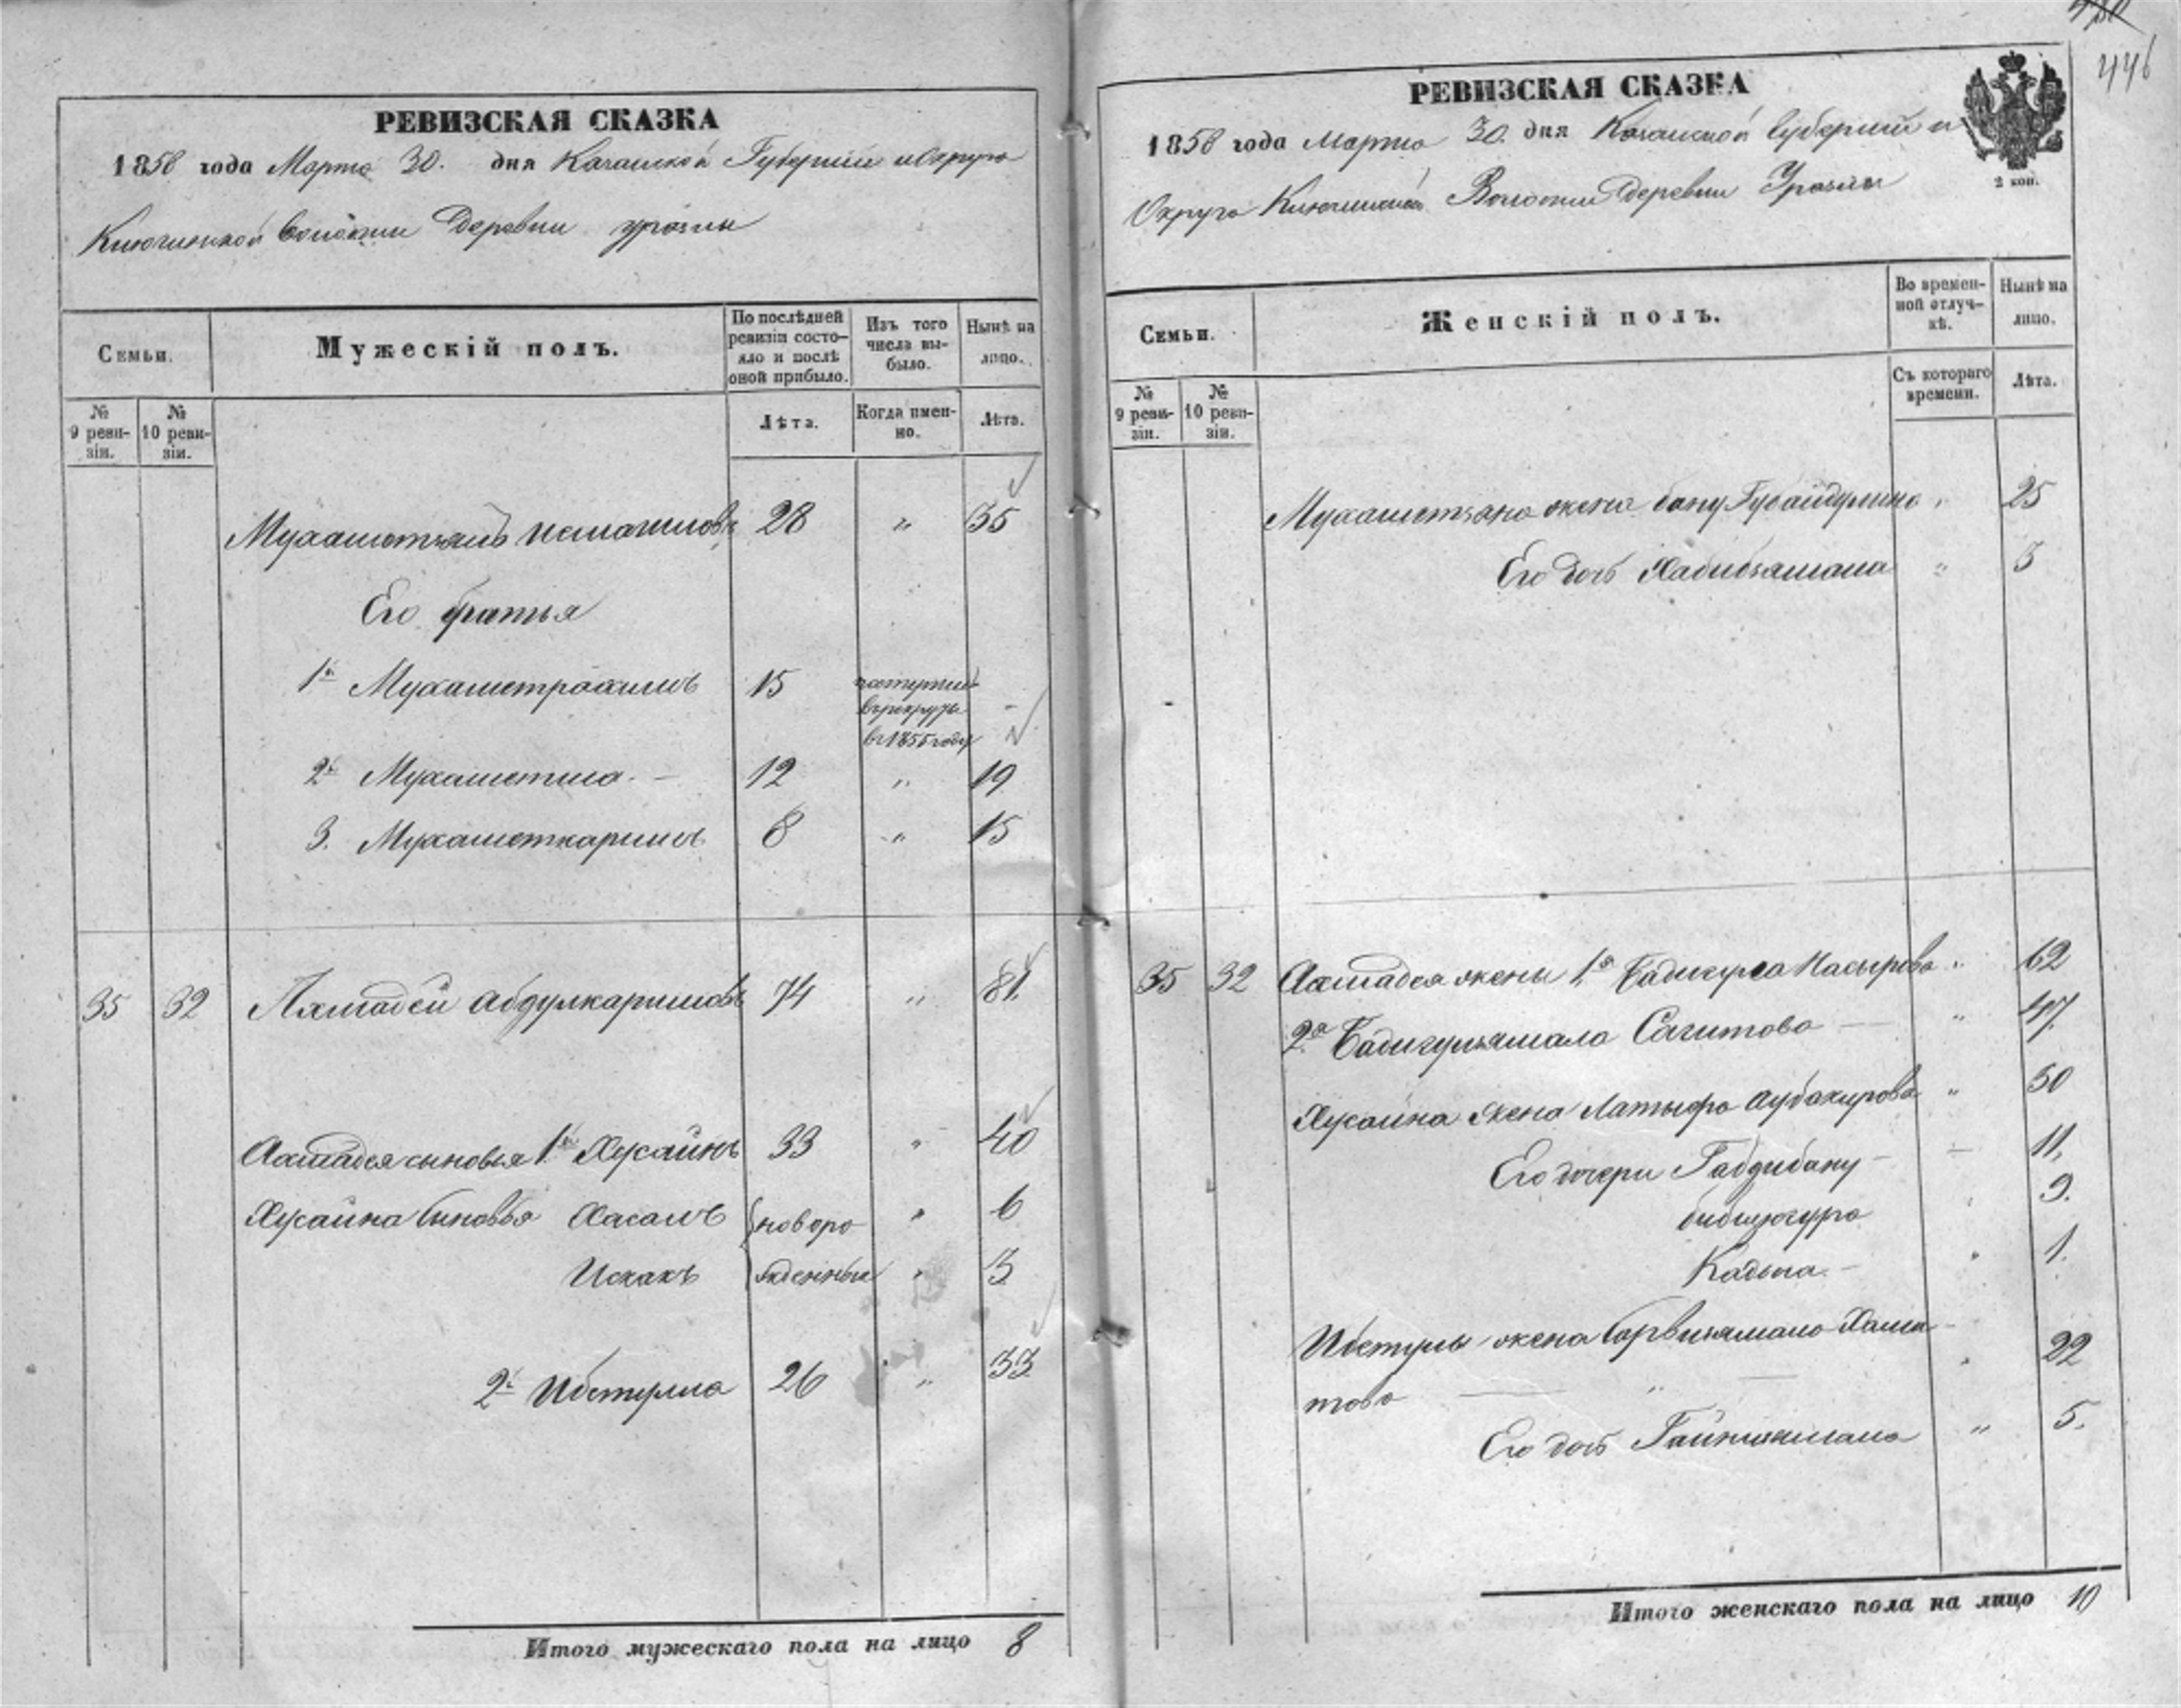 РЕВИЗСКАЯ СКАЗКА
1858 года Марта 30. дня Казанской Губернии и Округа
Ключинской волости деревни уразлы
Семьи.
Мужескій полъ.
По послѣдней ревизіи состо-
яло и послѣ
оной прибыло.
Изъ того
числа вы-
было.
Нынѣ на
лицо.
№
9 реви-
зіи.
№
10 реви-
зіи.
Лѣта.
Когда имен-
но.
Лѣта.
Мухаметзянъ Исмагиловъ 28 " 35
Его братья
1й Мухаметрахимъ 15 поступилъ
в рекруты
в 1855 году –
2й Мухаметша. – 12 " 19
3. Мухаметкаримъ 8 " 15
35 32 Ахмадей Абдулкаримовъ 74 " 81.
Ахмадея сыновья 1й Хусаинъ 33 " 40
Хусаина сыновья Хасанъ новоро " 6
Искакъ жденныи " 3
2й Ибетулла 26 " 33.
Итого мужескаго пола на лицо 8
446
РЕВИЗСКАЯ СКАЗКА
1858 года Марта 30. дня Казанской Губернии и
Округа Ключинской Волости деревни Уразлы
2 коп.
Семьи.
Женскій полъ.
Во времен-
ной отлуч-
кѣ.
Нынѣ на
лицо.
№
9 реви-
зіи.
№
10 реви-
зіи.
Съ котораго
времени.
Лѣта.
Мухаметзяна жена бану Губайдулина " 25
Его дочь Хабибзямала " 3
35 32 Ахмадея жены 1я Бадигула Насырова " 62
2я Бадигульзямала Сагитова – " 47.
Хусаина жена Латыфа Аубакирова " 30
Его дочери Габдибану – – 11.
9.
Кадыча. – " 1.
Ибетуллы жена Сарвизямало Хами
това – " – " 22
Его дочь Гайнизямала " 5.
Итого женскаго пола на лицо 10